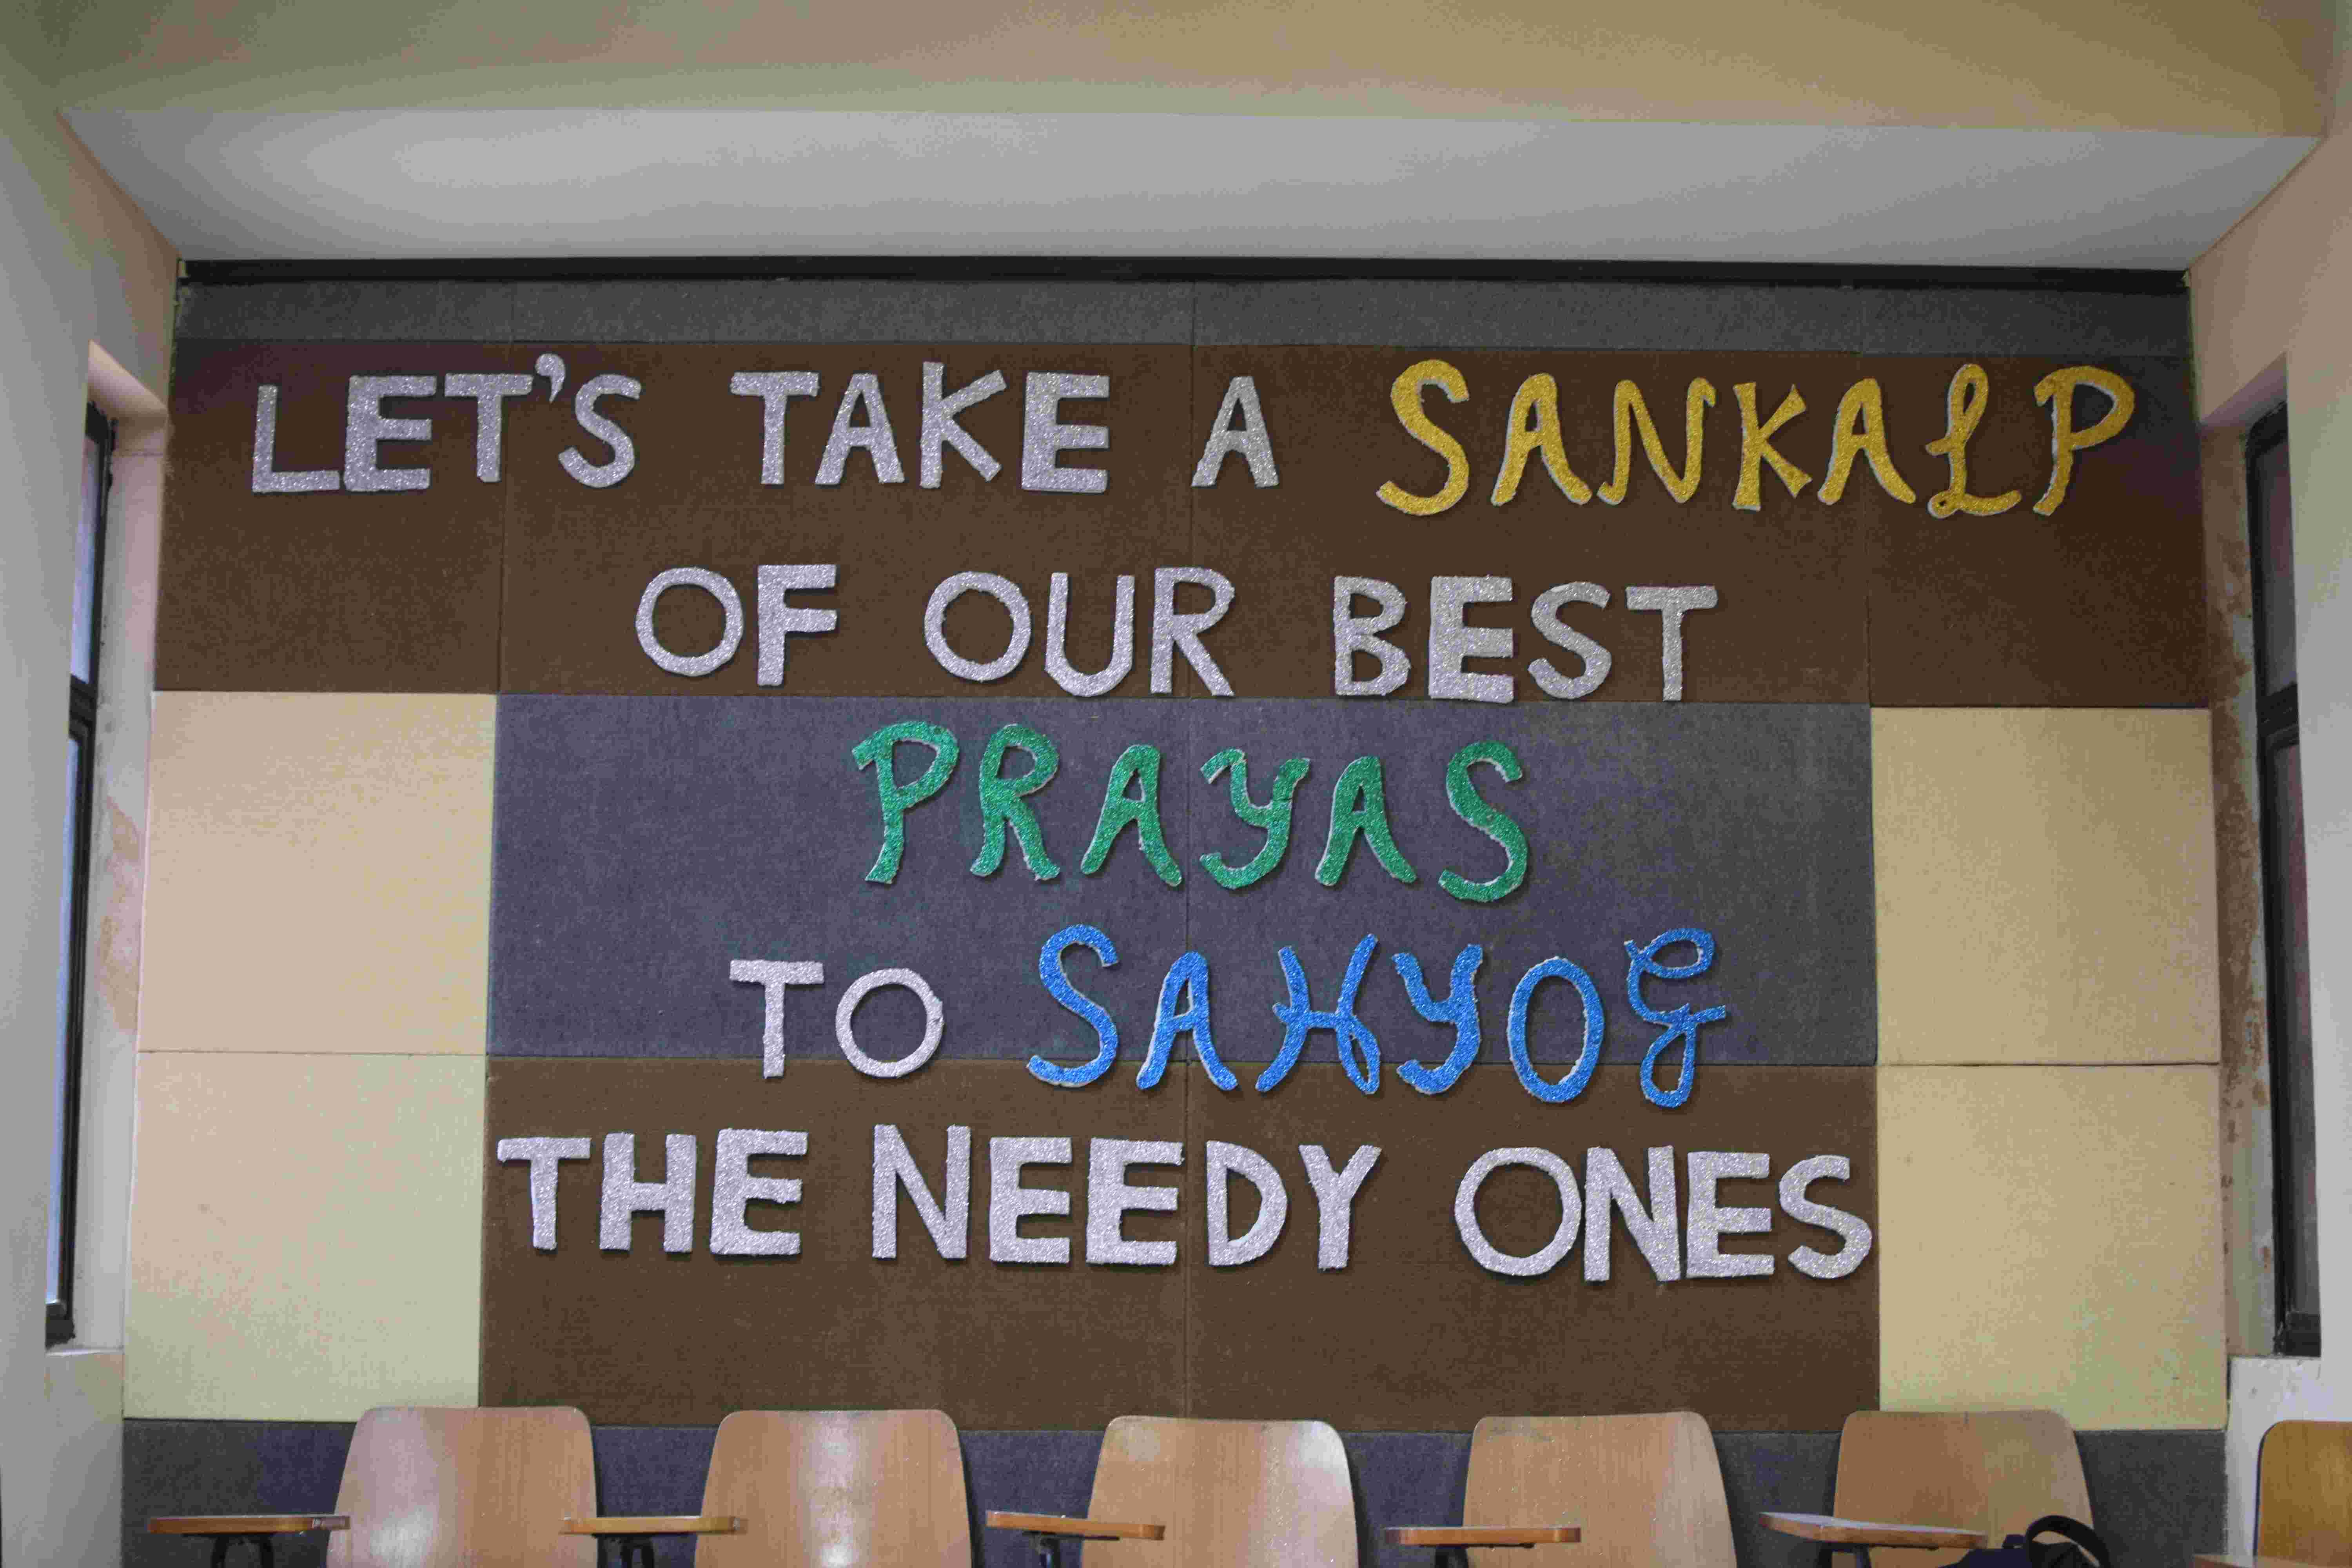 LET'S TAKE A SANKALP
OF OUR BEST
PRAYAS
TO SAHYOG
THE NEEDY ONES